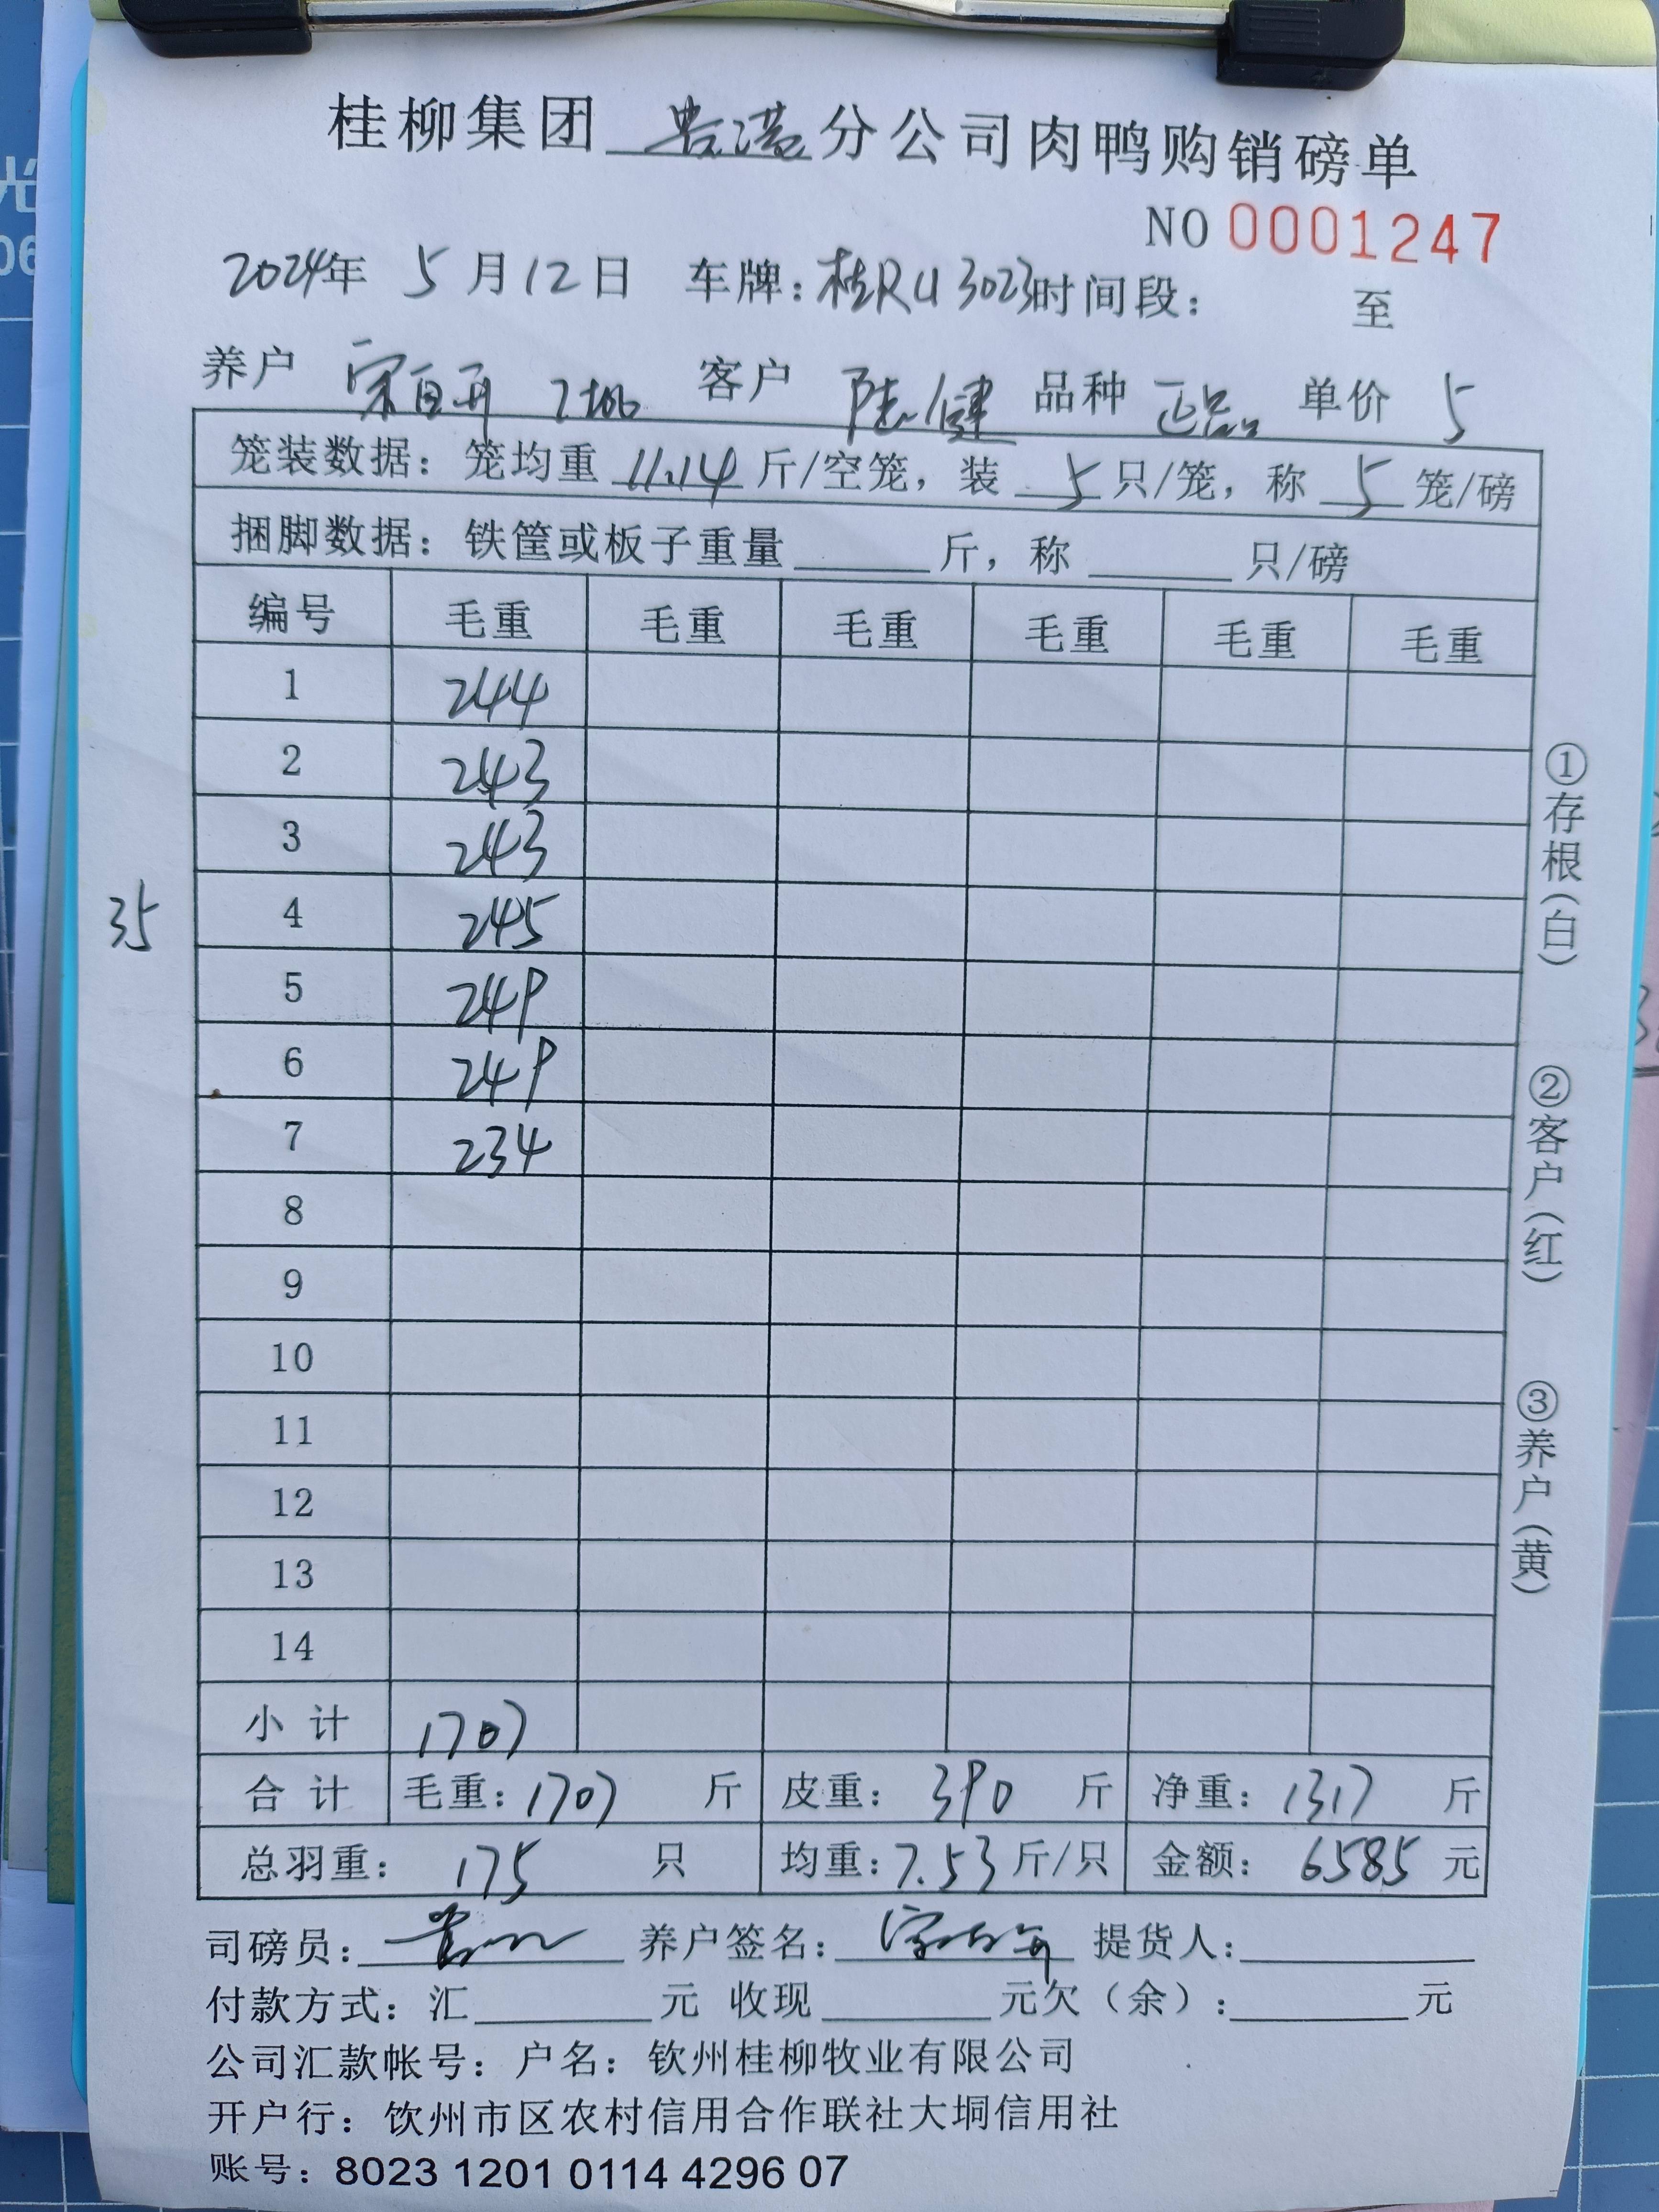 桂柳集团 贵港 分公司肉鸭购销磅单
NO 0001247
2024年 5 月 12 日 车牌: 桂RU3023 时间段: 至
养户 客户 陆健 品种 正品 单价 5
笼装数据: 笼均重 11.14 斤/空笼, 装 5 只/笼, 称 5 笼/磅
捆脚数据: 铁筐或板子重量 斤, 称 只/磅
编号 毛重 毛重 毛重 毛重 毛重 毛重
1 244
2 243
3 243
35
4 245
5 249
6 249
7 234
8
9
10
11
12
13
14
小计 1707
合计 毛重: 1707 斤 皮重: 390 斤 净重: 1317 斤
总羽重: 175 只 均重: 7.53 斤/只 金额: 6585 元
司磅员: 养户签名: 提货人:
付款方式: 汇 元 收现 元欠(余): 元
公司汇款帐号: 户名: 钦州桂柳牧业有限公司
开户行: 饮州市区农村信用合作联社大垌信用社
账号: 8023 1201 0114 4296 07
①存根(白)
②客户(红)
③养户(黄)
光
06